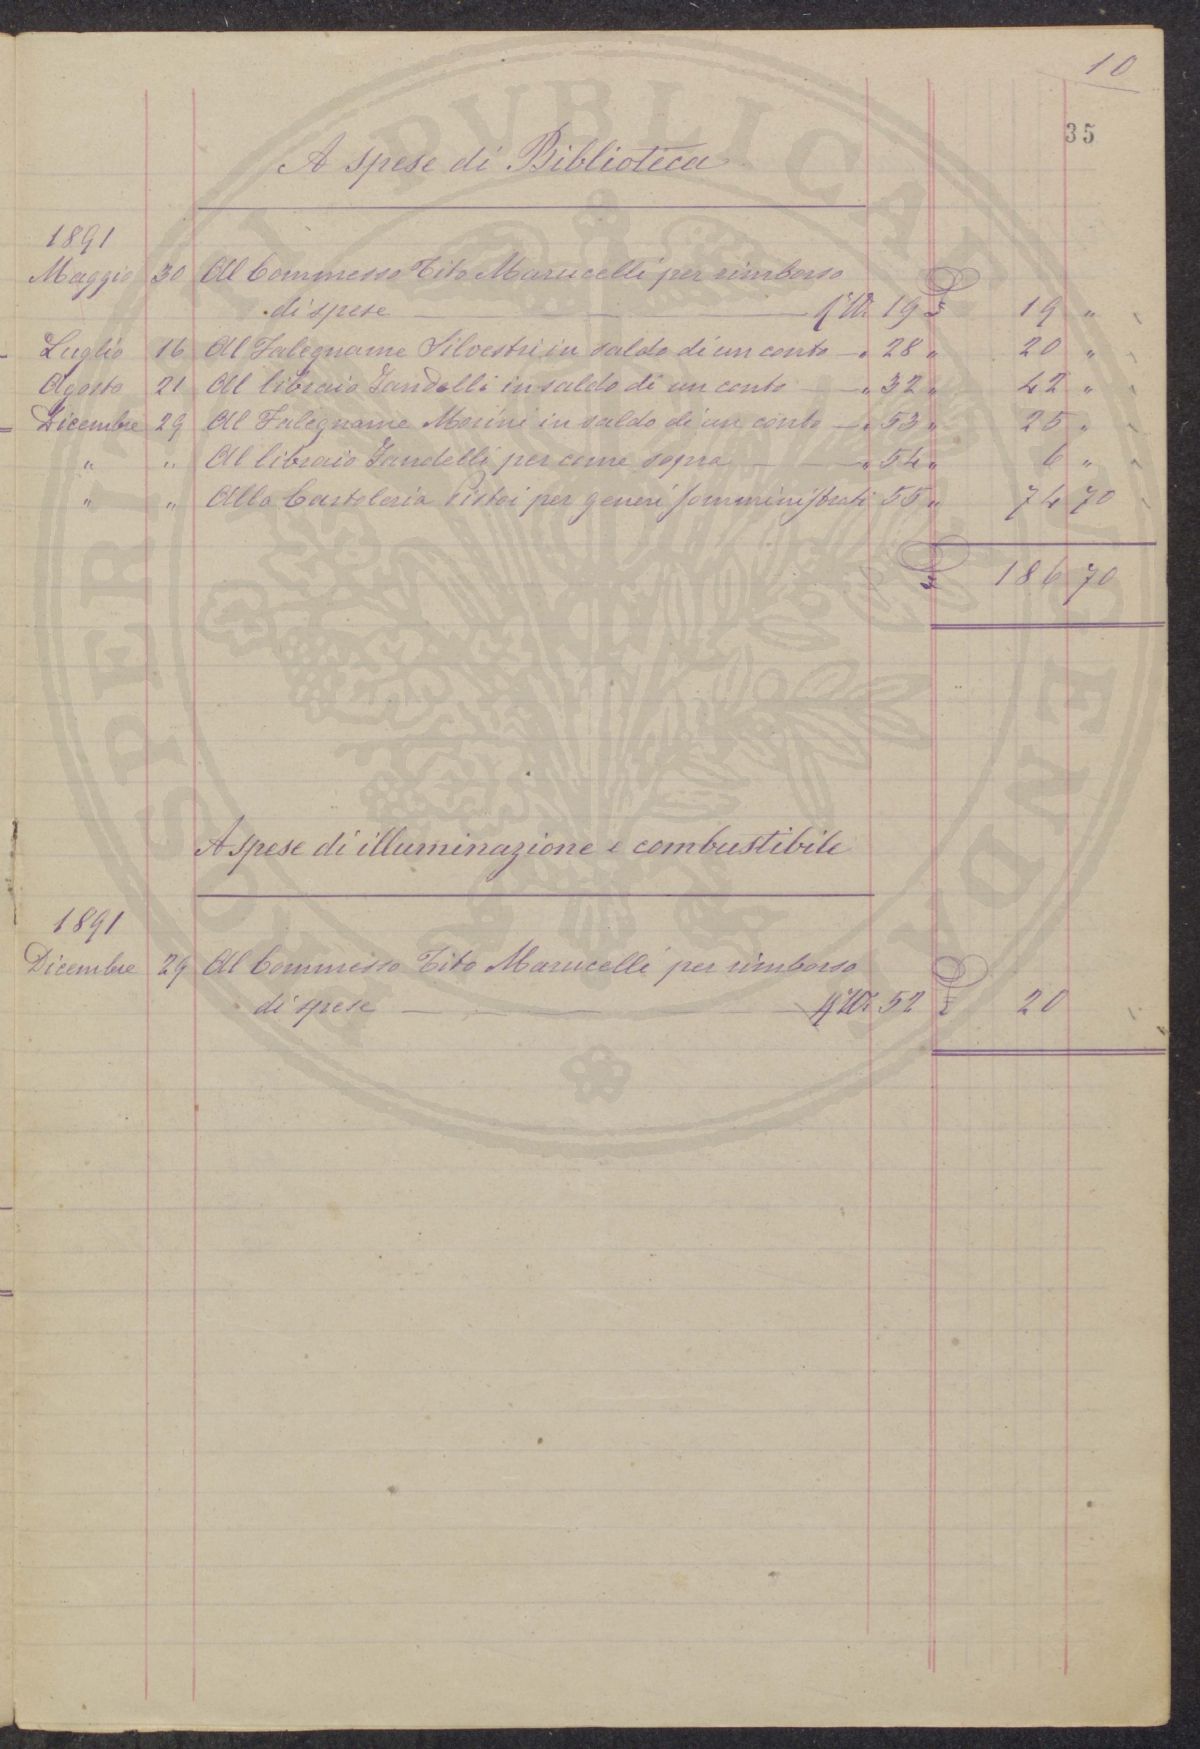 10
35
A spese di Biblioteca
1891
Maggio 30 Al Commesso Tito Marucelli per rimborso
di spese 19 £ 19 "
Luglio 16 Al Falegname Silvestri in saldo di un conto " 28 " 20 "
Agosto 21 Al libraio Zandelli in saldo di un conto " 32 " 42 "
Dicembre 29 Al Falegname Morini in saldo di un conto " 53 " 25 "
" " Al libraio Zandelli per come sopra " 54 " 6 "
" " Alla Cartoleria Pistoi per generi somministrati 55 " 74 70
£ 186 70
A spese di illuminazione e combustibile
1891
Dicembre 29 Al Commesso Tito Marucelli per rimborso
di spese 52 £ 20